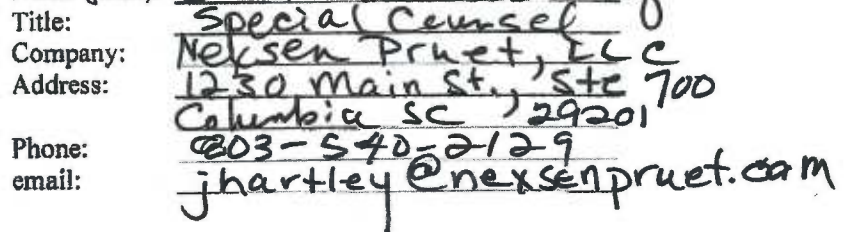 Title: Special Counsel
Company: Neksen Pruet, LLC
Address: 1230 Main St., Ste 700
Columbia SC, 29201
Phone: 803-540-2129
email: jhartley@nexsenpruet.com